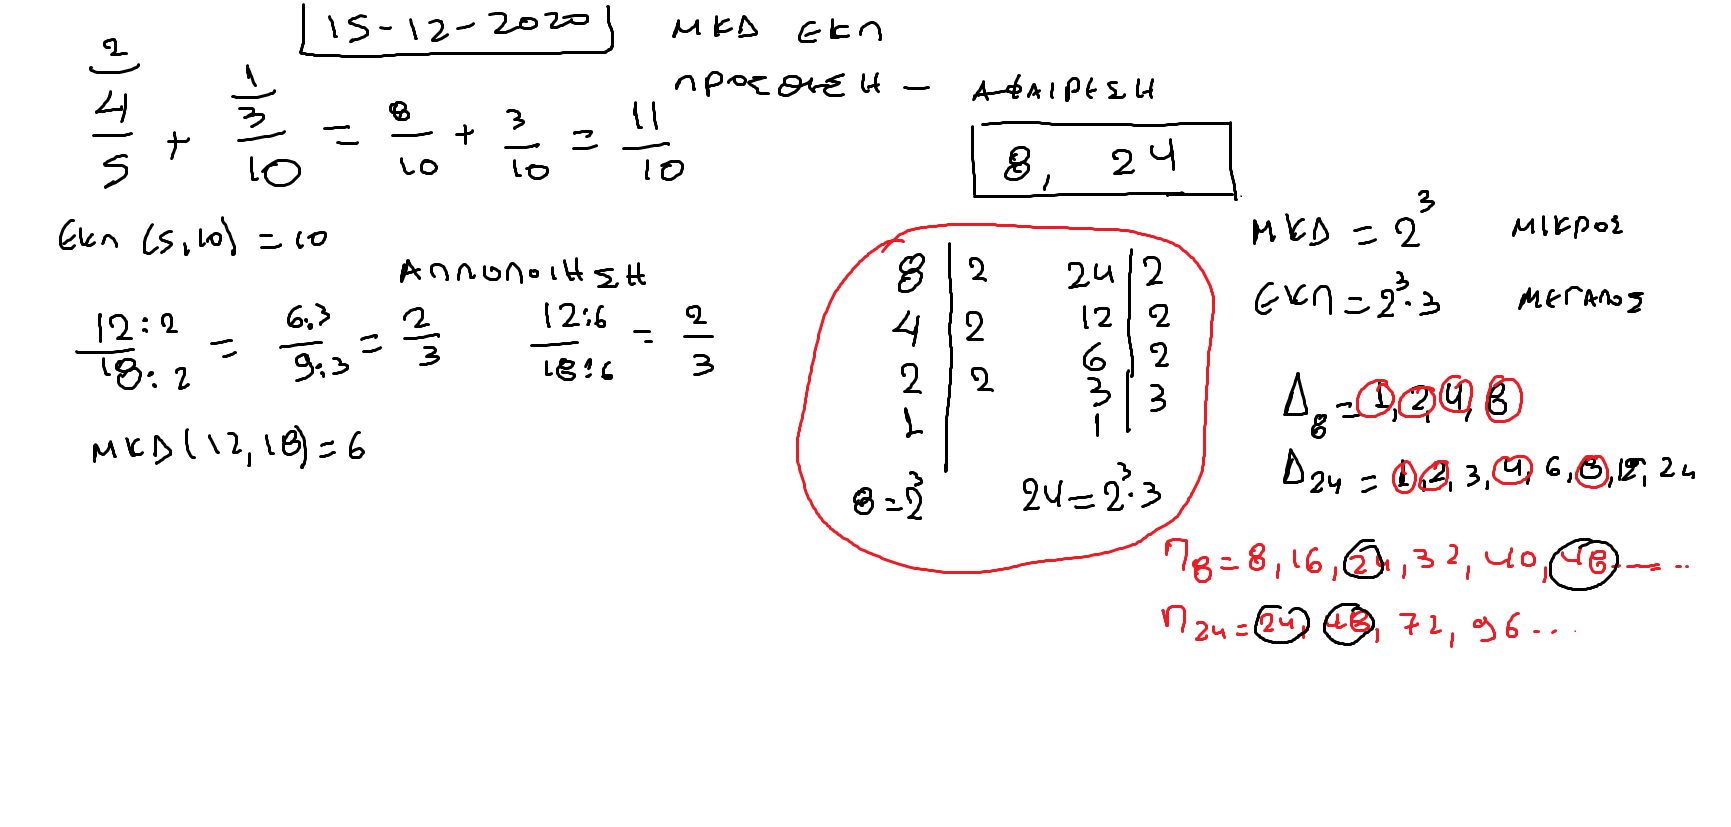 15-12-2020 ΜΚΔ ΕΚΠ
ΠΡΟΣΘΕΣΗ - ΑΦΑΙΡΕΣΗ
2 1
4/5 + 3/10 = 8/10 + 3/10 = 11/10
8, 24
ΕΚΠ (5,10) = 10
ΑΠΛΟΠΟΙΗΣΗ
12:2/18:2 = 6:3/9:3 = 2/3 12:6/18:6 = 2/3
ΜΚΔ (12,18) = 6
8 | 2 24 | 2
4 | 2 12 | 2
2 | 2 6 | 2
1 3 | 3
1
8=2³ 24=2³·3
ΜΚΔ = 2³ ΜΙΚΡΟΣ
ΕΚΠ = 2³·3 ΜΕΓΑΛΟΣ
Δ8 = 1, 2, 4, 8
Δ24 = 1, 2, 3, 4, 6, 8, 12, 24
Π8 = 8, 16, 24, 32, 40, 48 ----..
Π24 = 24, 48, 72, 96 ...